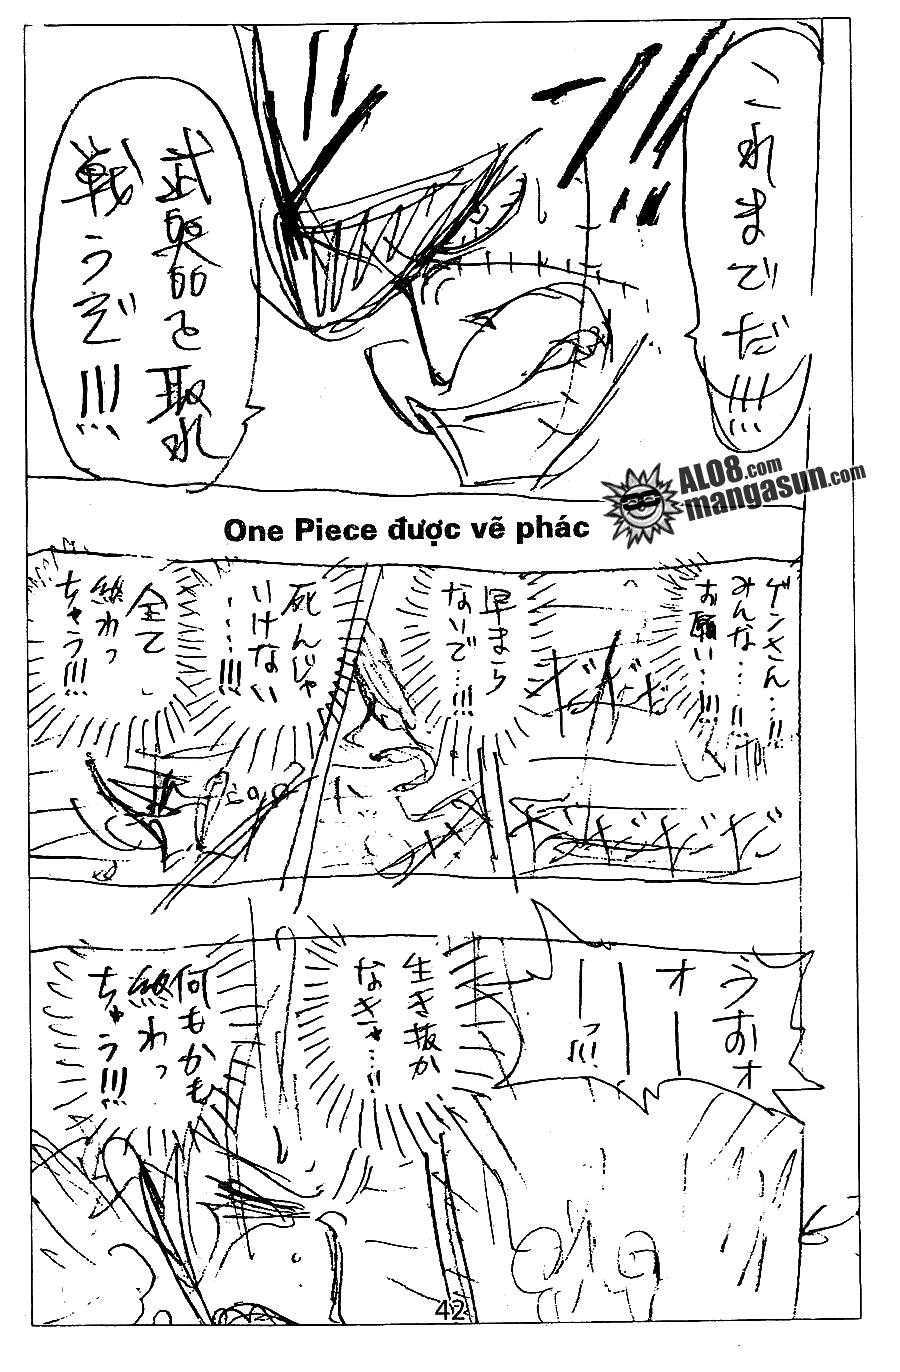 これまでだ!!!
武器を取れ
戦うぞ!!!
AL08.com
mangasun.com
One Piece được vẽ phác
ゲンさん…!!
みんな…!!
お願い…!!!
早まら
ないで…!!!
死んじゃ
いけない
…!!!
全て
終わっ
ちゃう!!!
ギギギ
うおォ
オー
ー
ーっ!!!
生き抜か
なきゃ…!!
何もかも
終わっ
ちゃう!!!
42